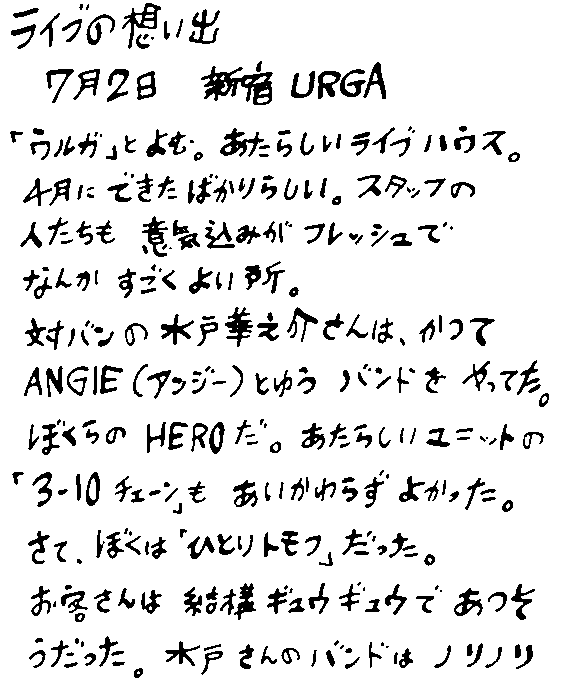 ライブの想い出
7月2日 新宿 URGA
「ウルガ」とよむ。あたらしいライブハウス。
4月にできたばかりらしい。スタッフの
人たちも 意気込みが フレッシュで
なんか すごく よい所。
対バンの 水戸華之介さんは、かつて
ANGIE(アンジー)とゆう バンドを やってた。
ぼくらの HEROだ。あたらしいユニットの
「3-10 チェーン」も あいかわらず よかった。
さて、ぼくは「ひとりトモフ」だった。
お客さんは 結構 ギュウギュウで あつそ
うだった。水戸さんのバンドは ノリノリ